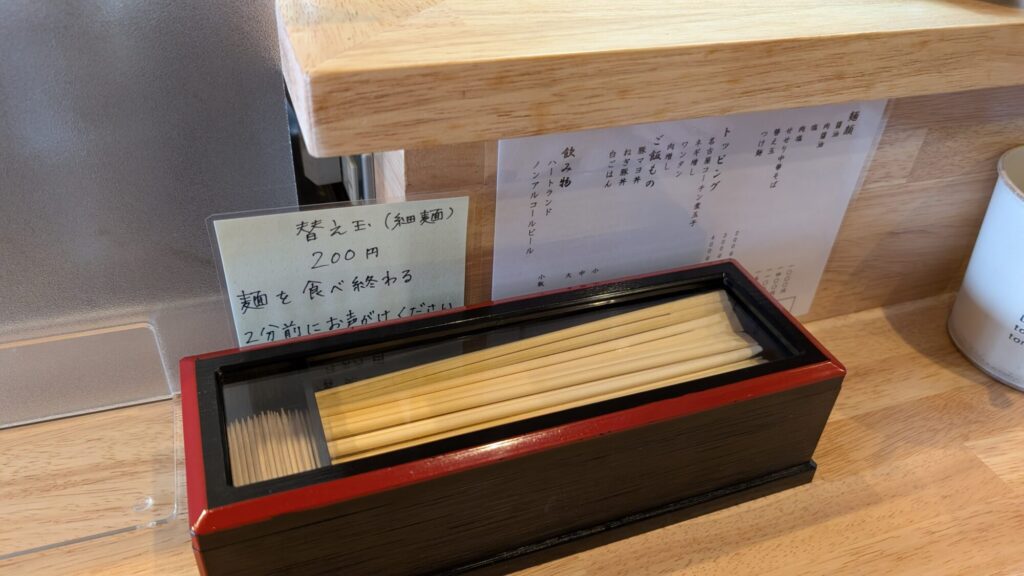 替え玉(細麺)
200円
麺を食べ終わる
2分前にお声がけください
麺類
醤油
肉醤油
塩
肉塩
せせり中華そば
替え玉
つけ麺
トッピング
名古屋コーチン煮玉子
ネギ増し
ワンタン
肉増し
ご飯もの
豚マヨ丼
ねぎ豚丼
白ごはん
小
中
大
飲み物
ハートランド
ノンアルコールビール
小瓶